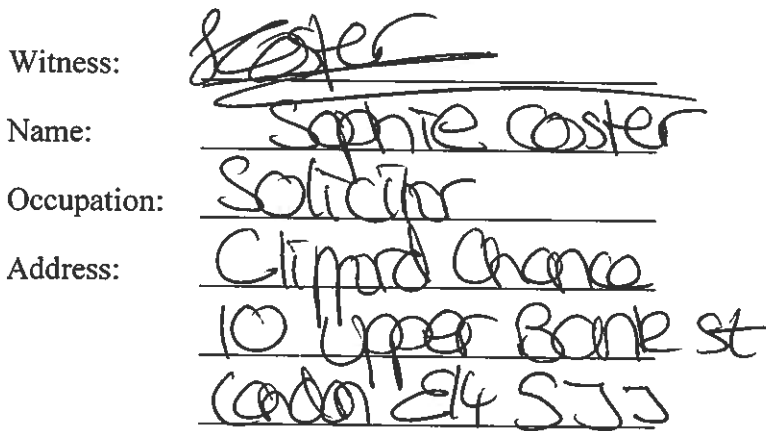 Witness: SCoster
Name: Sophie Coster
Occupation: Solicitor
Address: Clifford Chance
10 Upper Bank st
London E14 5JJ